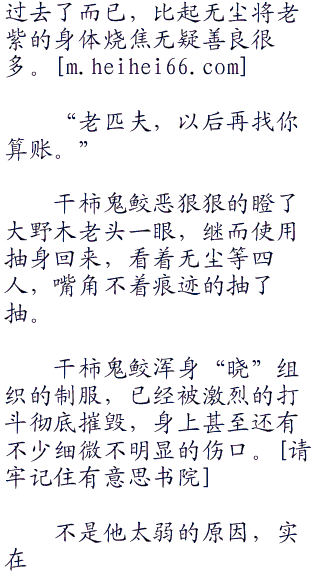 过去了而已，比起无尘将老
紫的身体烧焦无疑善良很
多。[m.heihei66.com]
“老匹夫，以后再找你
算账。”
干柿鬼鲛恶狠狠的瞪了
大野木老头一眼，继而使用
抽身回来，看着无尘等四
人，嘴角不着痕迹的抽了
抽。
干柿鬼鲛浑身“晓”组
织的制服，已经被激烈的打
斗彻底摧毁，身上甚至还有
不少细微不明显的伤口。[请
牢记住有意思书院]
不是他太弱的原因，实
在